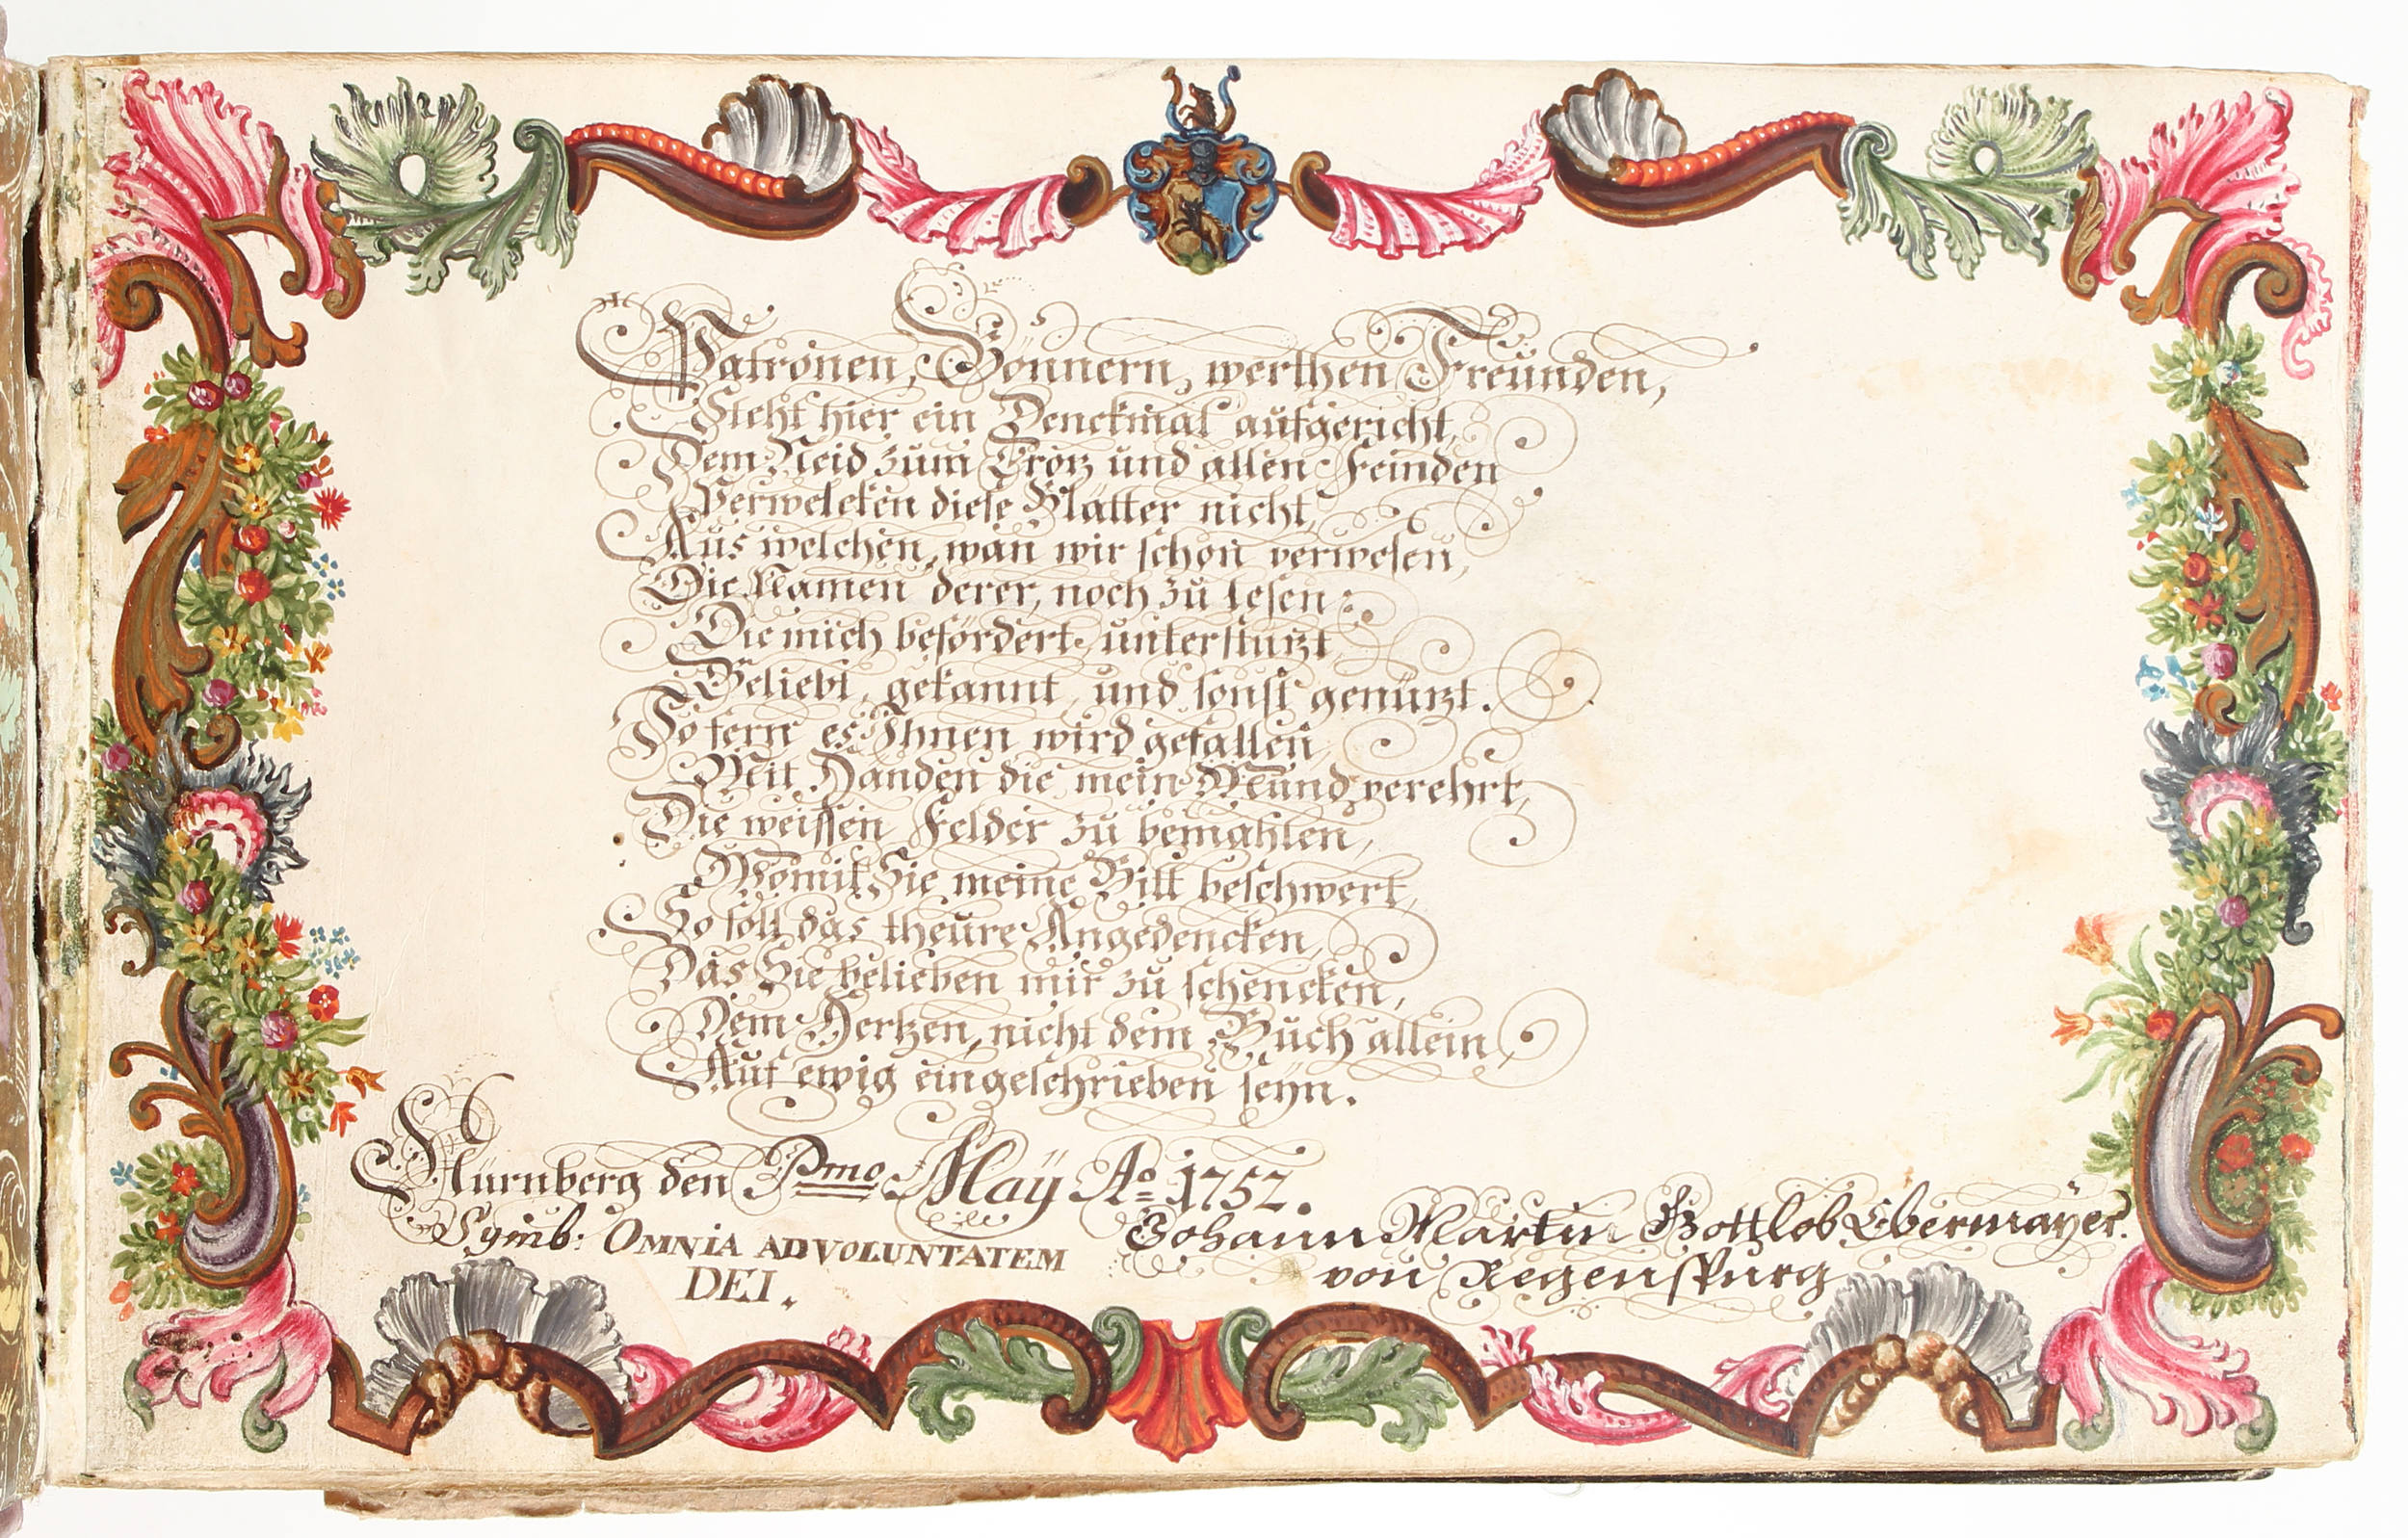 Patronen, Gönnern, werthen Freunden,
Steht hier ein Denckmal aufgericht,
Dem Neid zum Trotz und allen Feinden
Verwelcken diese Blätter nicht,
Aus welchen, wan wir schon verwesen,
Die Namen derer, noch zu lesen:
Die mich befördert, unterstützt,
Geliebt, gekannt, und sonst genützt.
So fern es Ihnen wird gefallen,
Mit Händen die mein Mund verehrt,
Die weissen Felder zu bemahlen,
Womit Sie meine Bitt beschwert,
So soll das theure Angedencken,
Das Sie belieben mir zu schencken,
Dem Hertzen, nicht dem Buch allein,
Auf ewig eingeschrieben seyn.
Nürnberg den Pmo May Ao 1752.
Symb: OMNIA AD VOLUNTATEM
DEI.
Johann Martin Gottlob Ebermayer.
von Regenspurg